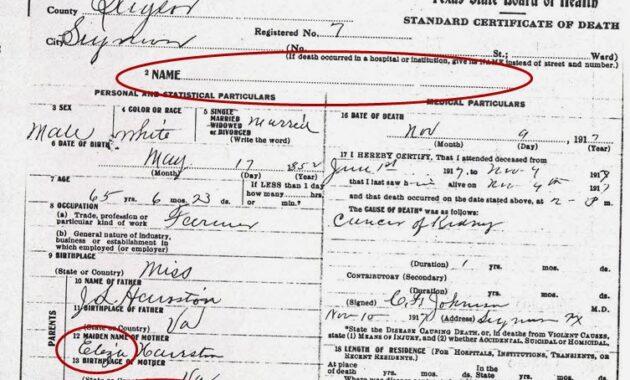 Texas State Board of Health
County Baylor
STANDARD CERTIFICATE OF DEATH
Registered No. 7
City Seymour
(No. St.; Ward)
(If death occurred in a hospital or institution, give its NAME instead of street and number.)
2 NAME
PERSONAL AND STATISTICAL PARTICULARS
3 SEX
Male
4 COLOR OR RACE
White
5 SINGLE
MARRIED
WIDOWED
or DIVORCED
(Write the word)
Married
6 DATE OF BIRTH
May 17 1852
(Month) (Day) (Year)
7 AGE
65 yrs. 6 mos. 23 ds.
If LESS than 1 day
how many hrs.
or min.?
8 OCCUPATION
(a) Trade, profession or
particular kind of work Farmer
(b) General nature of industry,
business or establishment in
which employed (or employer)
9 BIRTHPLACE
(State or Country) Miss
PARENTS
10 NAME OF FATHER
J L Hairston
11 BIRTHPLACE OF FATHER
(State or Country) Va
12 MAIDEN NAME OF MOTHER
Eliza Hairston
13 BIRTHPLACE OF MOTHER
(State or Country) Va
MEDICAL PARTICULARS
16 DATE OF DEATH
Nov 9, 1917
(Month) (Day) (Year)
17 I HEREBY CERTIFY, That I attended deceased from
June 1st 1917, to Nov 9 191
that I last saw him alive on Nov 9th 191
and that death occurred on the date stated above, at 2- P m.
The CAUSE OF DEATH* was as follows:
Cancer of Kidney
(Duration) 1 yrs. mos. ds.
CONTRIBUTORY (Secondary)
(Duration) yrs. mos. ds.
(Signed) Johnson M.D.
Nov 10 191 (Address) Seymour Tx
*State the DISEASE CAUSING DEATH, or, in deaths from VIOLENT CAUSES,
state (1) MEANS OF INJURY, and (2) whether ACCIDENTAL, SUICIDAL or HOMICIDAL.
18 LENGTH OF RESIDENCE (FOR HOSPITALS, INSTITUTIONS, TRANSIENTS, OR
RECENT RESIDENTS.)
At place
of death yrs. mos. ds. State yrs. mos. ds.
Where was disease contracted